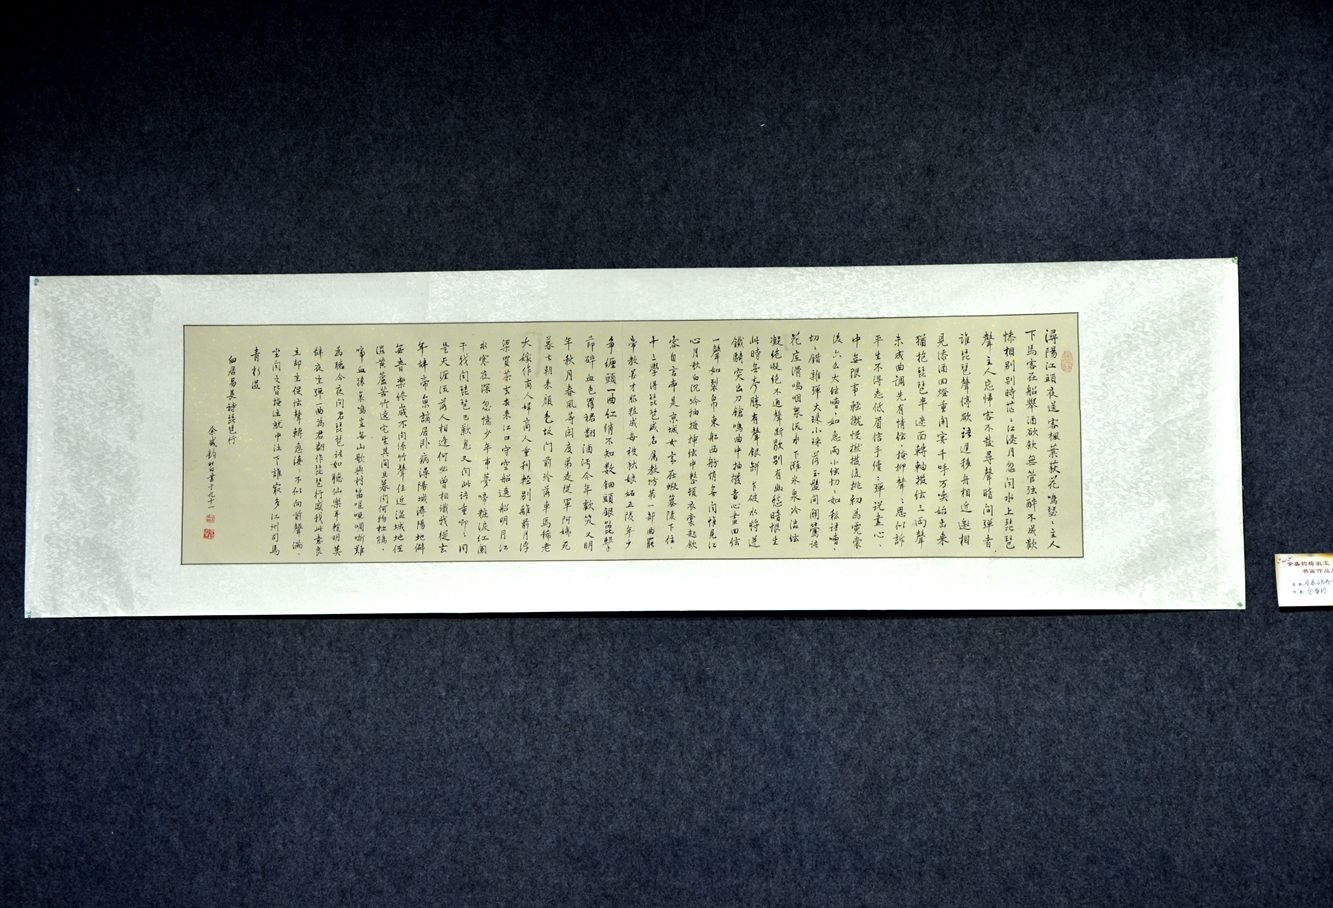 潯陽江頭夜送客楓葉荻花鳴瑟〻主人
下馬客在船舉酒欲飲無管弦醉不成歡
慘相別別時茫〻江浸月忽聞水上琵琶
聲主人忘歸客不發尋聲暗問彈者
誰琵琶聲停欲語遲移舟相近邀相
見添酒回燈重開宴千呼万喚始出來
猶抱琵琶半遮面轉軸撥弦三兩聲
未成曲調先有情弦〻掩抑聲〻思似訴
平生不得志低眉信手續〻彈說盡心
中無限事輕攏慢撚撥復挑初為霓裳
後六幺大弦嘈〻如急雨小弦切〻如私語嘈〻
切〻錯雜彈大珠小珠落玉盤間關鶯語
花底滑鳴咽泉流水下灘水泉冷澁弦
凝絕凝絕不通聲漸歇別有幽愁暗恨生
此時無聲勝有聲銀缾乍破水漿迸
鐵騎突出刀鎗鳴曲中抽撥當心畫四弦
一聲如裂帛東船西舫悄無言惟見江
心月秋白沉吟抽撥插弦中整頓衣裳起斂
容自言本是京城女家在蝦蟇陵下住
十三學得琵琶成名屬教坊第一部曲罷
常教善才服粧成每被秋娘妬五陵年少
爭纏頭一曲紅綃不知數鈿頭銀篦擊
節碎血色羅裙翻酒污今年歡笑又明
年秋月春風等閑度弟走從軍阿姨死
暮去朝來顏色故門前冷落車馬稀老
大嫁作商人婦商人重利輕別離前月浮
梁買茶去去來江口守空船遶船明月江
水寒夜深忽憶少年事夢啼粧淚紅闌
干我聞琵琶已歎息又聞此語重唧〻同
是天涯淪落人相逢何必曾相識我從去
年辭帝京謫居卧病潯陽城潯陽地僻
無音樂終歲不聞絲竹聲住近湓城地低
濕黃蘆苦竹遶宅生其間旦暮聞何物杜鵑
啼血猿哀鳴豈無山歌與村笛嘔啞嘲哳難
為聽今夜聞君琵琶語如聽仙樂耳暫明莫
辭更坐彈一曲為君翻作琵琶行感我此言良
立却坐促弦弦轉急淒〻不似向前聲滿〻
坐聞之皆掩泣就中泣下誰最多江州司馬
青衫濕
白居易長詩琵琶行
余盛鈞書于九十一
书画作品